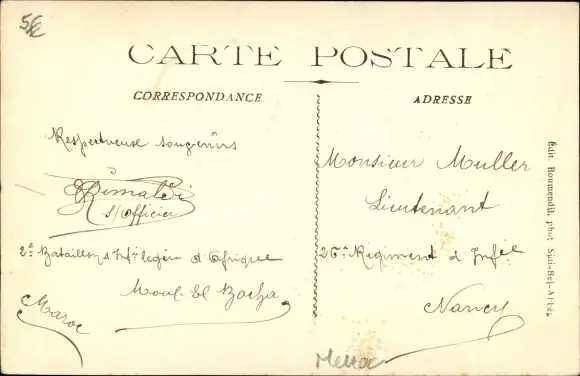 5€
CARTE POSTALE
CORRESPONDANCE
ADRESSE
Respectueuse souvenirs
s/officier
2e Bataillon d'Infie légère d'Afrique
Moul-El Bacha
Maroc
Monsieur Muller
Lieutenant
26e Régiment d'Infie
Nancy
Édit. Boumendil, phot Sidi-Bel-Abbès